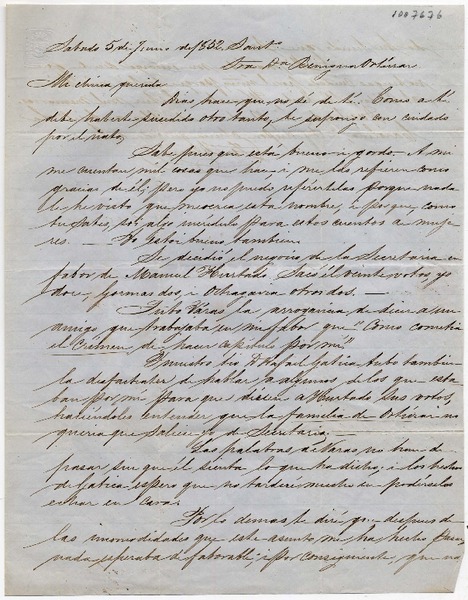 1007676
Sabado 5 de Junio de 1852. Sant.
Sra Dña Benigna Ortúzar
Mi china querida
Dias hace que no sé de ti. Como a ti
debe haberte sucedido otro tanto, te supongo con cuidado
por el ñato.
Sabe pues que está bueno i gordo. A mi
me cuentan mil cosas que hace i me las refieren como
gracias de él; pero yo no puedo referirtelas porque nada
le he visto que merezca este nombre, i porque, como
tu sabes, soi algo incredulo para estos cuentos de muje
res. — Yo estoi bueno tambien.
Se decidió el negocio de la Secretaria en
fabor de Manuel Hurtado. Sacó él veinte votos, yo
doce, Formas dos i Ochagavia otros dos. —
Tubo Varas la arrogancia de decir a un
amigo que trabajaba en mi fabor que "Como cometia
el Crímen de hacer capitulo por mi"
Y nuestro tio D. Rafael Gatica tubo tambien
la desfachatez de hablar a algunos de los que esta
ban por mi para que diesen a Hurtado sus votos,
haciendoles entender que la familia de Ortúzar no
queria que saliese yo de Secretario.
Las palabras de Varas no han de
pasar sin que él sienta lo que ha dicho, i los hechos
de Gatica espero que no tardaré mucho en podérselos
echar en cara.
Por lo demas te diré que despues de
las incomodidades que este asunto me ha hecho
nada esperaba de faborable; i por consiguiente, que no